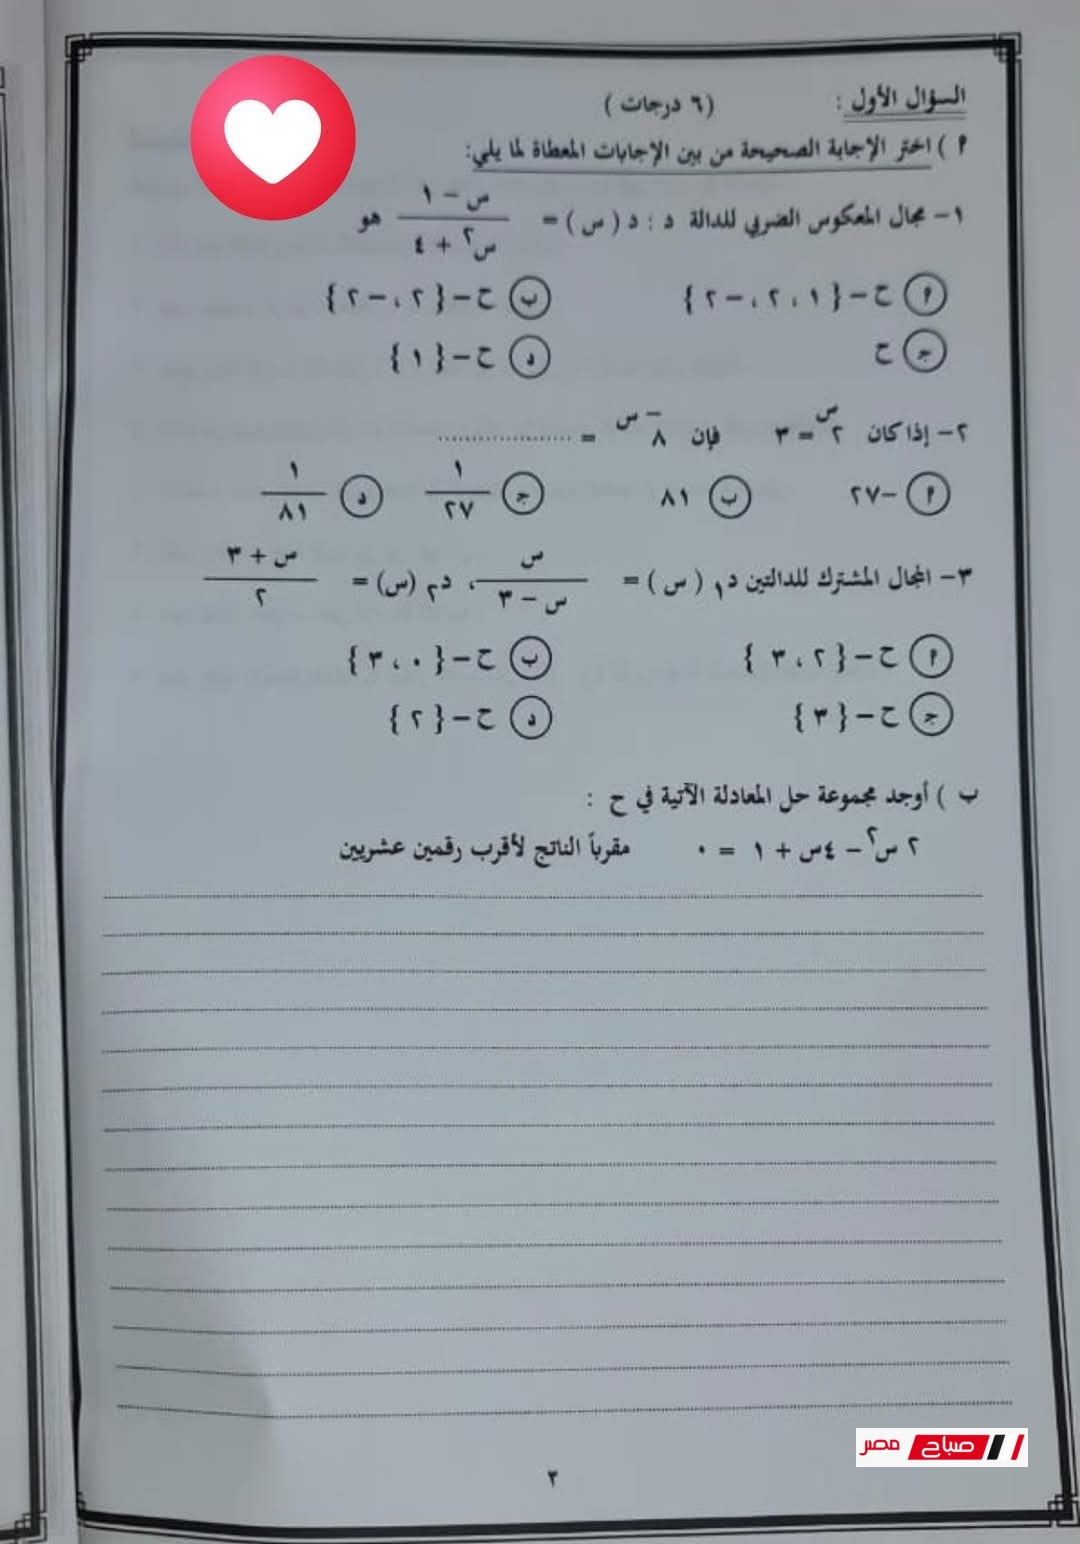 السؤال الأول : (٦ درجات)
٩ ) اختر الإجابة الصحيحة من بين الإجابات المعطاة لما يلي:
١- مجال المعكوس الضربي للدالة د : د ( س ) = (س - ١) / (س٢ + ٤) هو
٩ ح - { ١ ، ٢ ، - ٢ } ب ح - { ٢ ، - ٢ }
ج ح د ح - { ١ }
٢- إذا كان ٢^س = ٣ فإن ٨^-س = ...................
٩ -٢٧ ب ٨١ ج ١/٢٧ د ١/٨١
٣- المجال المشترك للدالتين د١ ( س ) = س / (س - ٣) ، د٢ (س) = (س + ٣) / ٢
٩ ح - { ٢ ، ٣ } ب ح - { ٠ ، ٣ }
ج ح - { ٣ } د ح - { ٢ }
ب ) أوجد مجموعة حل المعادلة الآتية في ح :
٢ س٢ - ٤س + ١ = ٠ مقرباً الناتج لأقرب رقمين عشريين
صباح مصر
٣